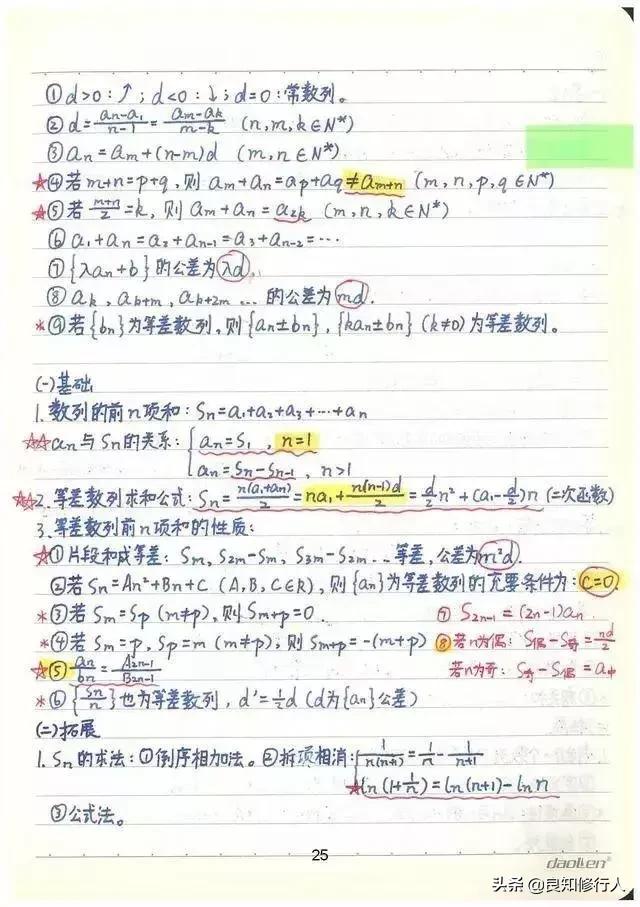 ①d>0:↗;d<0:↓;d=0:常数列。
②d=(an-a₁)/(n-1)=(am-ak)/(m-k) (n,m,k∈N*)
③an=am+(n-m)d (m,n∈N*)
☆④若m+n=p+q,则am+an=ap+aq≠am+n (m,n,p,q∈N*)
☆⑤若(m+n)/2=k,则am+an=a2k (m,n,k∈N*)
⑥a₁+an=a₂+an-1=a₃+an-2=…
⑦{λan+b}的公差为λd.
⑧ak,ak+m,ak+2m…的公差为md.
*⑨若{bn}为等差数列,则{an±bn},{kan±bn}(k≠0)为等差数列。
(一)基础
1.数列的前n项和:Sn=a₁+a₂+a₃+…+an
☆☆an与Sn的关系:{an=S₁,n=1
an=Sn-Sn-1,n>1
☆☆2.等差数列求和公式:Sn=n(a₁+an)/2=na₁+n(n-1)d/2=d/2n²+(a₁-d/2)n(二次函数)
3.等差数列前n项和的性质:
☆①片段和成等差:Sm,S2m-Sm,S3m-S2m…等差,公差为m²d.
②若Sn=An²+Bn+C (A,B,C∈R),则{an}为等差数列的充要条件为:C=0.
*③若Sm=Sp (m≠p),则Sm+p=0. ⑦S2n-1=(2n-1)an.
*④若Sm=p,Sp=m (m≠p),则Sm+p=-(m+p) ⑧若n为偶:S偶-S奇=nd/2
☆⑤an/bn=A2n-1/B2n-1 若n为奇:S奇-S偶=a中
*⑥{Sn/n}也为等差数列,d'=½d (d为{an}公差)
(二)拓展
1.Sn的求法:①倒序相加法。②拆项相消:{1/n(n+1)=1/n-1/(n+1)
☆ln(1+1/n)=ln(n+1)-ln n
③公式法。
25
daolLen
头条@良知修行人